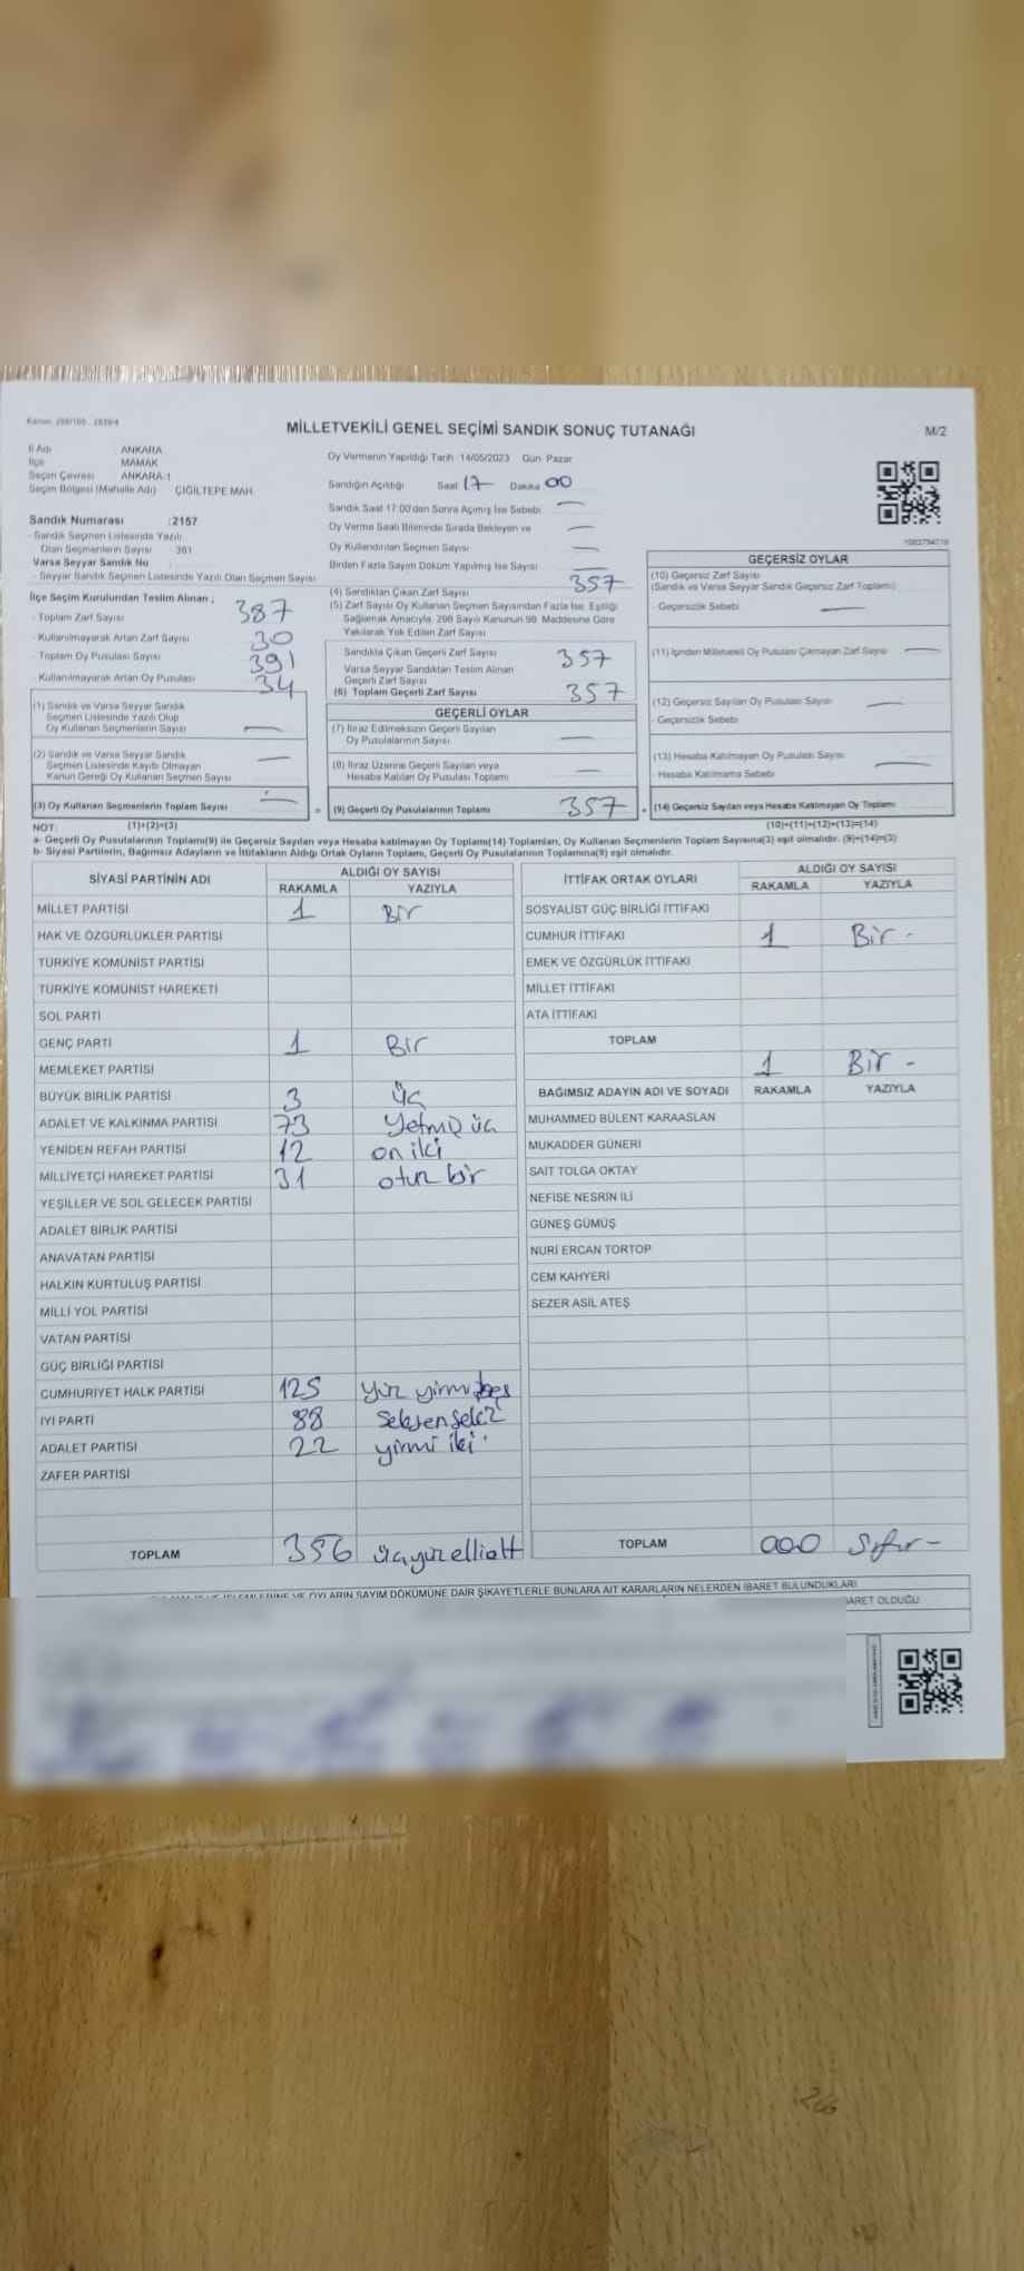 MİLLETVEKİLİ GENEL SEÇİMİ SANDIK SONUÇ TUTANAĞI
M/2
İl Adı ANKARA
İlçe MAMAK
Seçim Çevresi ANKARA-1
Seçim Bölgesi (Mahalle Adı) ÇİĞİLTEPE MAH.
Oy Vermenin Yapıldığı Tarih :14/05/2023 Gün: Pazar
Sandığın Açıldığı Saat 17 Dakika 00
Sandık Saat 17:00'dan Sonra Açılmış İse Sebebi —
Oy Verme Saati Bitiminde Sırada Bekleyen ve —
Oy Kullandırılan Seçmen Sayısı —
Birden Fazla Sayım Döküm Yapılmış İse Sayısı —
Sandık Numarası :2157
- Sandık Seçmen Listesinde Yazılı
Olan Seçmenlerin Sayısı 361
Varsa Seyyar Sandık No
- Seyyar Sandık Seçmen Listesinde Yazılı Olan Seçmen Sayısı
İlçe Seçim Kurulundan Teslim Alınan ;
- Toplam Zarf Sayısı 387
- Kullanılmayarak Artan Zarf Sayısı 30
- Toplam Oy Pusulası Sayısı 391
- Kullanılmayarak Artan Oy Pusulası 34
(1) Sandık ve Varsa Seyyar Sandık
Seçmen Listesinde Yazılı Olup
Oy Kullanan Seçmenlerin Sayısı —
(2) Sandık ve Varsa Seyyar Sandık
Seçmen Listesinde Kayıtlı Olmayan
Kanun Gereği Oy Kullanan Seçmen Sayısı —
(3) Oy Kullanan Seçmenlerin Toplam Sayısı —
(1)+(2)=(3)
(4) Sandıktan Çıkan Zarf Sayısı 357
(5) Zarf Sayısı Oy Kullanan Seçmen Sayısından Fazla İse, Eşitliği
Sağlamak Amacıyla, 298 Sayılı Kanunun 98. Maddesine Göre
Yakılarak Yok Edilen Zarf Sayısı
Sandıkta Çıkan Geçerli Zarf Sayısı 357
Varsa Seyyar Sandıktan Teslim Alınan
Geçerli Zarf Sayısı
(6) Toplam Geçerli Zarf Sayısı 357
GEÇERLİ OYLAR
(7) İtiraz Edilmeksizin Geçerli Sayılan
Oy Pusulalarının Sayısı —
(8) İtiraz Üzerine Geçerli Sayılan veya
Hesaba Katılan Oy Pusulası Toplamı —
(9) Geçerli Oy Pusulalarının Toplamı 357
GEÇERSİZ OYLAR
(10) Geçersiz Zarf Sayısı
(Sandık ve Varsa Seyyar Sandık Geçersiz Zarf Toplamı)
- Geçersizlik Sebebi —
(11) İçinden Milletvekili Oy Pusulası Çıkmayan Zarf Sayısı —
(12) Geçersiz Sayılan Oy Pusulası Sayısı —
- Geçersizlik Sebebi
(13) Hesaba Katılmayan Oy Pusulası Sayısı —
- Hesaba Katılmama Sebebi
(14) Geçersiz Sayılan veya Hesaba Katılmayan Oy Toplamı
(10)+(11)+(12)+(13)=(14)
NOT:
a- Geçerli Oy Pusulalarının Toplamı(9) ile Geçersiz Sayılan veya Hesaba katılmayan Oy Toplamı(14) Toplamları, Oy Kullanan Seçmenlerin Toplam Sayısına(3) eşit olmalıdır. (9)+(14)=(3)
b- Siyasi Partilerin, Bağımsız Adayların ve İttifakların Aldığı Ortak Oyların Toplamı, Geçerli Oy Pusulalarının Toplamına(9) eşit olmalıdır.
SİYASİ PARTİNİN ADI ALDIĞI OY SAYISI
RAKAMLA YAZIYLA
MİLLET PARTİSİ 1 Bir
HAK VE ÖZGÜRLÜKLER PARTİSİ
TÜRKİYE KOMÜNİST PARTİSİ
TÜRKİYE KOMÜNİST HAREKETİ
SOL PARTİ
GENÇ PARTİ 1 Bir
MEMLEKET PARTİSİ
BÜYÜK BİRLİK PARTİSİ 3 üç
ADALET VE KALKINMA PARTİSİ 73 yetmiş üç
YENİDEN REFAH PARTİSİ 12 on iki
MİLLİYETÇİ HAREKET PARTİSİ 31 otuz bir
YEŞİLLER VE SOL GELECEK PARTİSİ
ADALET BİRLİK PARTİSİ
ANAVATAN PARTİSİ
HALKIN KURTULUŞ PARTİSİ
MİLLİ YOL PARTİSİ
VATAN PARTİSİ
GÜÇ BİRLİĞİ PARTİSİ
CUMHURİYET HALK PARTİSİ 125 yüz yirmi beş
İYİ PARTİ 88 seksen sekiz
ADALET PARTİSİ 22 yirmi iki
ZAFER PARTİSİ
TOPLAM 356 üçyüzellialtı
İTTİFAK ORTAK OYLARI ALDIĞI OY SAYISI
RAKAMLA YAZIYLA
SOSYALİST GÜÇ BİRLİĞİ İTTİFAKI
CUMHUR İTTİFAKI 1 Bir -
EMEK VE ÖZGÜRLÜK İTTİFAKI
MİLLET İTTİFAKI
ATA İTTİFAKI
TOPLAM 1 Bir -
BAĞIMSIZ ADAYIN ADI VE SOYADI RAKAMLA YAZIYLA
MUHAMMED BÜLENT KARAASLAN
MUKADDER GÜNERİ
SAİT TOLGA OKTAY
NEFİSE NESRİN İLİ
GÜNEŞ GÜMÜŞ
NURİ ERCAN TORTOP
CEM KAHYERİ
SEZER ASİL ATEŞ
TOPLAM 000 Sıfır -
OYLARIN SAYIM DÖKÜMÜNE DAİR ŞİKAYETLERLE BUNLARA AİT KARARLARIN NELERDEN İBARET BULUNDUKLARI
İBARET OLDUĞU